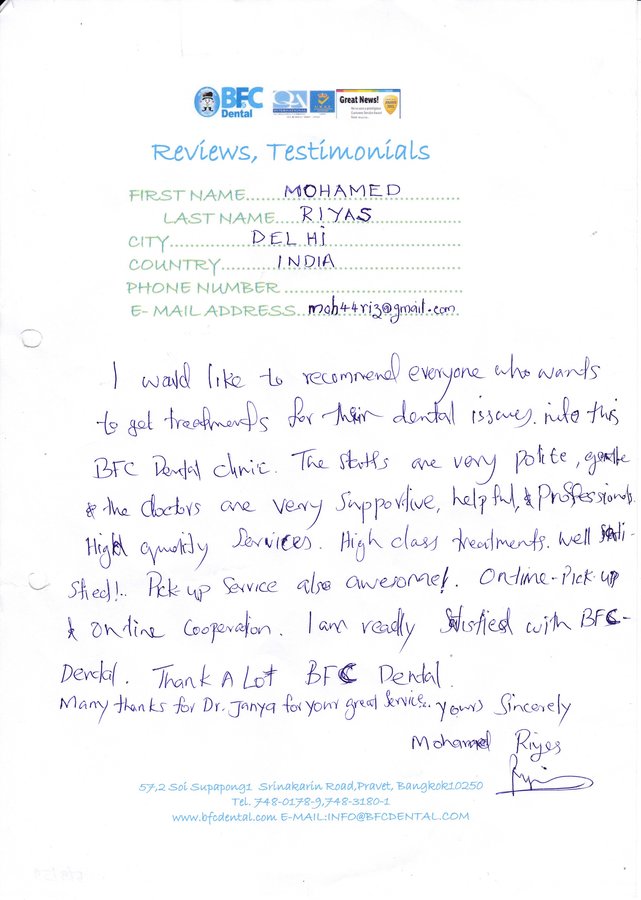 BFC
Dental
QA
Great News!
Reviews, Testimonials
FIRST NAME MOHAMED
LAST NAME RIYAS
CITY DELHI
COUNTRY INDIA
PHONE NUMBER
E-MAIL ADDRESS moh44riz@gmail.com
I would like to recommend everyone who wants
to get treatments for their dental issues. into this
BFC Dental clinic. The staffs are very polite, gentle
& the doctors are very Supportive, helpful, & Professionals.
High quality Services. High class treatments. Well Sati-
sfied!.. Pick-up Service also awesome!. On-time-Pick-up
& On time Cooperation. I am really Satisfied with BFC-
Dental. Thank A Lot BFC Dental.
Many thanks for Dr. Janya for your great Service.. yours Sincerely
Mohamed Riyes
57,2 Soi Supapong1 Srinakarin Road,Pravet, Bangkok10250
Tel. 748-0178-9,748-3180-1
www.bfcdental.com E-MAIL:INFO@BFCDENTAL.COM